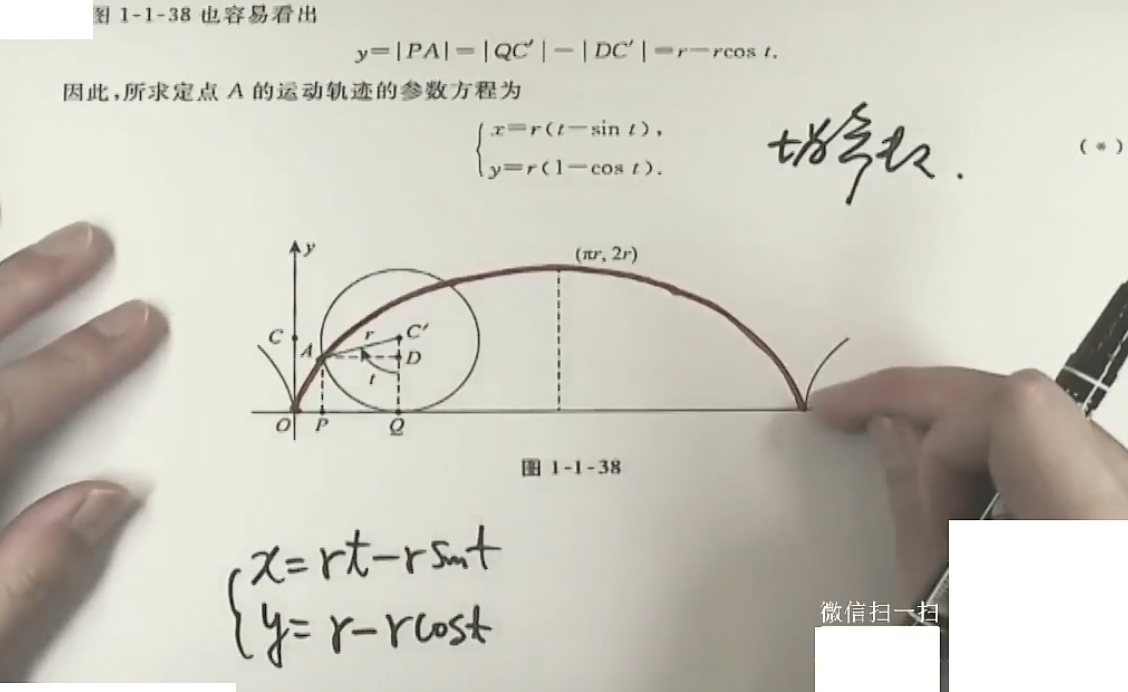 图 1-1-38 也容易看出
y=|PA|=|QC′|-|DC′|=r-rcos t.
因此,所求定点 A 的运动轨迹的参数方程为
x=r(t-sin t),
y=r(1-cos t).
(*)
t为参数.
y
(πr, 2r)
C
r
C′
A
D
t
O
P
Q
图 1-1-38
x=rt-rsint
y=r-rcost
微信扫一扫